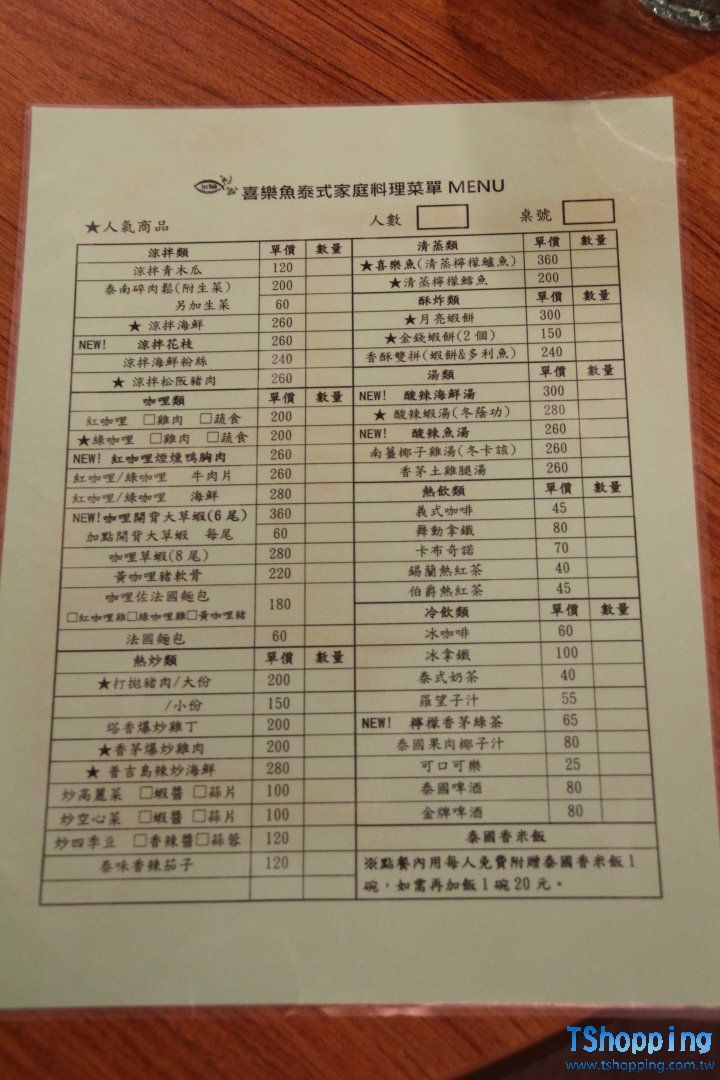 喜樂魚泰式家庭料理菜單 MENU
★人氣商品 人數 桌號
涼拌類 單價 數量
涼拌青木瓜 120
泰南碎肉鬆(附生菜) 200
另加生菜 60
★ 涼拌海鮮 260
NEW! 涼拌花枝 260
涼拌海鮮粉絲 240
★ 涼拌松阪豬肉 260
咖哩類 單價 數量
紅咖哩 □雞肉 □蔬食 200
★綠咖哩 □雞肉 □蔬食 200
NEW! 紅咖哩煙燻鴨胸肉 260
紅咖哩/綠咖哩 牛肉片 260
紅咖哩/綠咖哩 海鮮 280
NEW!咖哩開背大草蝦(6尾) 360
加點開背大草蝦 每尾 60
咖哩草蝦(8尾) 280
黃咖哩豬軟骨 220
咖哩佐法國麵包 180
□紅咖哩雞□綠咖哩雞□黃咖哩豬
法國麵包 60
熱炒類 單價 數量
★打拋豬肉/大份 200
/小份 150
塔香爆炒雞丁 200
★香茅爆炒雞肉 200
★ 普吉島辣炒海鮮 280
炒高麗菜 □蝦醬 □蒜片 100
炒空心菜 □蝦醬 □蒜片 100
炒四季豆 □香辣醬□蒜蓉 120
泰味香辣茄子 120
清蒸類 單價 數量
★喜樂魚(清蒸檸檬鱸魚) 360
★清蒸檸檬鱈魚 200
酥炸類 單價 數量
★月亮蝦餅 300
★金錢蝦餅(2個) 150
香酥雙拼(蝦餅&多利魚) 240
湯類 單價 數量
NEW! 酸辣海鮮湯 300
★ 酸辣蝦湯(冬蔭功) 280
NEW! 酸辣魚湯 260
南薑椰子雞湯(冬卡該) 260
香茅土雞腿湯 260
熱飲類 單價 數量
義式咖啡 45
舞動拿鐵 80
卡布奇諾 70
錫蘭熱紅茶 40
伯爵熱紅茶 45
冷飲類 單價 數量
冰咖啡 60
冰拿鐵 100
泰式奶茶 40
羅望子汁 55
NEW! 檸檬香茅綠茶 65
泰國果肉椰子汁 80
可口可樂 25
泰國啤酒 80
金牌啤酒 80
泰國香米飯
※點餐內用每人免費附贈泰國香米飯1
碗，如需再加飯1碗20元。
TShopping
www.tshopping.com.tw